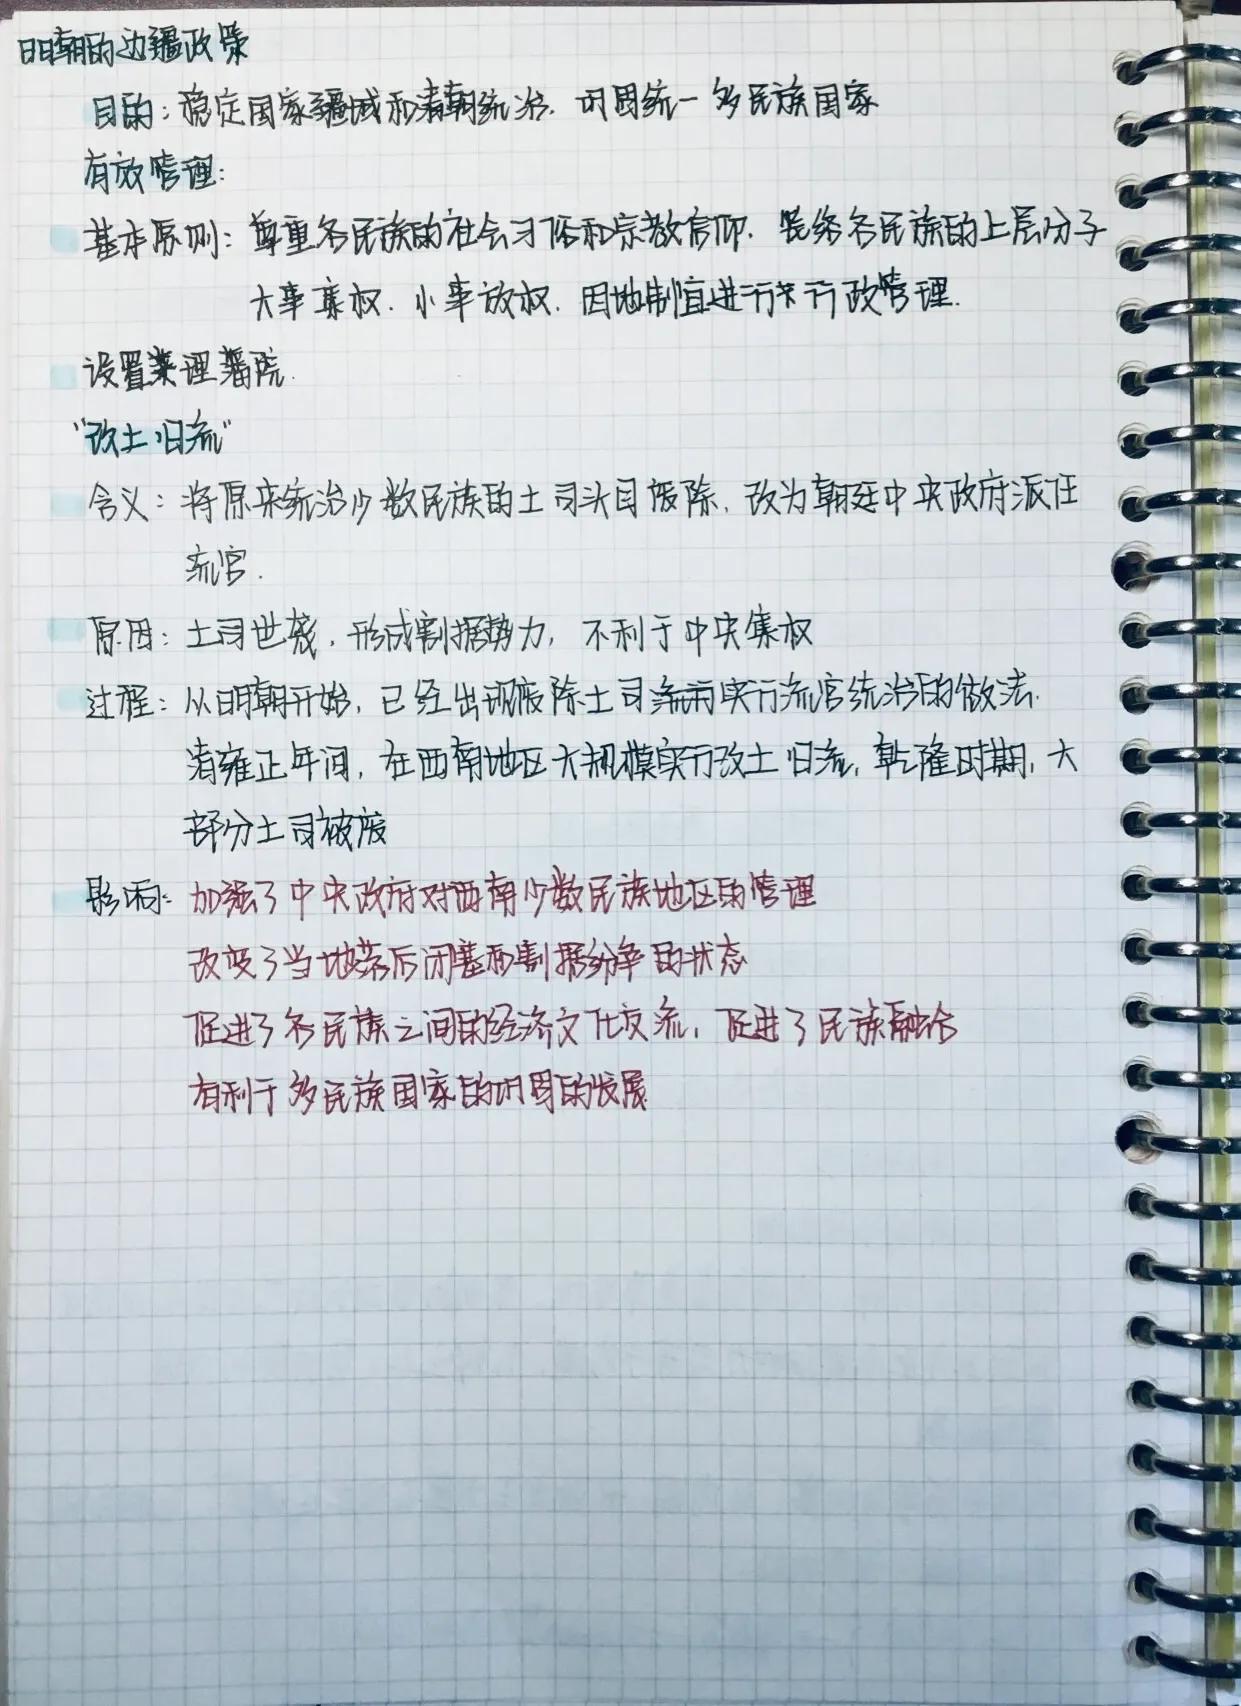 明朝的边疆政策
目的：稳定国家疆域和清朝统治．巩固统一多民族国家
有效管理：
基本原则：尊重各民族的社会习俗和宗教信仰．笼络各民族的上层分子
大事集权．小事放权．因地制宜进行行政管理．
设置理藩院．
“改土归流”
含义：将原来统治少数民族的土司头目废除．改为朝廷中央政府派任
流官．
原因：土司世袭，形成割据势力，不利于中央集权
过程：从明朝开始，已经出现废除土司实行流官统治的做法．
清雍正年间，在西南地区大规模实行改土归流，乾隆时期，大
部分土司被废
影响：加强了中央政府对西南少数民族地区的管理
改变了当地落后闭塞和割据纷争的状态
促进了各民族之间的经济文化交流，促进了民族融合
有利于多民族国家的巩固的发展